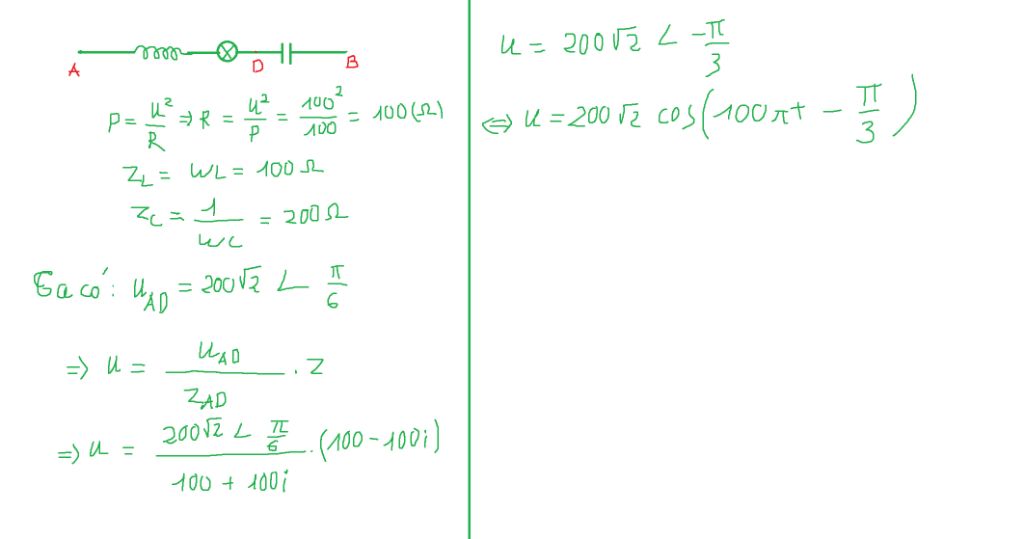 A D B
P = U²/R ⇒ R = U²/P = 100²/100 = 100(Ω)
Z_L = WL = 100 Ω
Z_C = 1/WC = 200 Ω
Ta có: U_AD = 200√2 ∠ π/6
⇒ U = U_AD/Z_AD . Z
⇒ U = (200√2 ∠ π/6)/(100 + 100i) . (100 - 100i)
U = 200√2 ∠ -π/3
⇔ U = 200√2 cos(100πt - π/3)